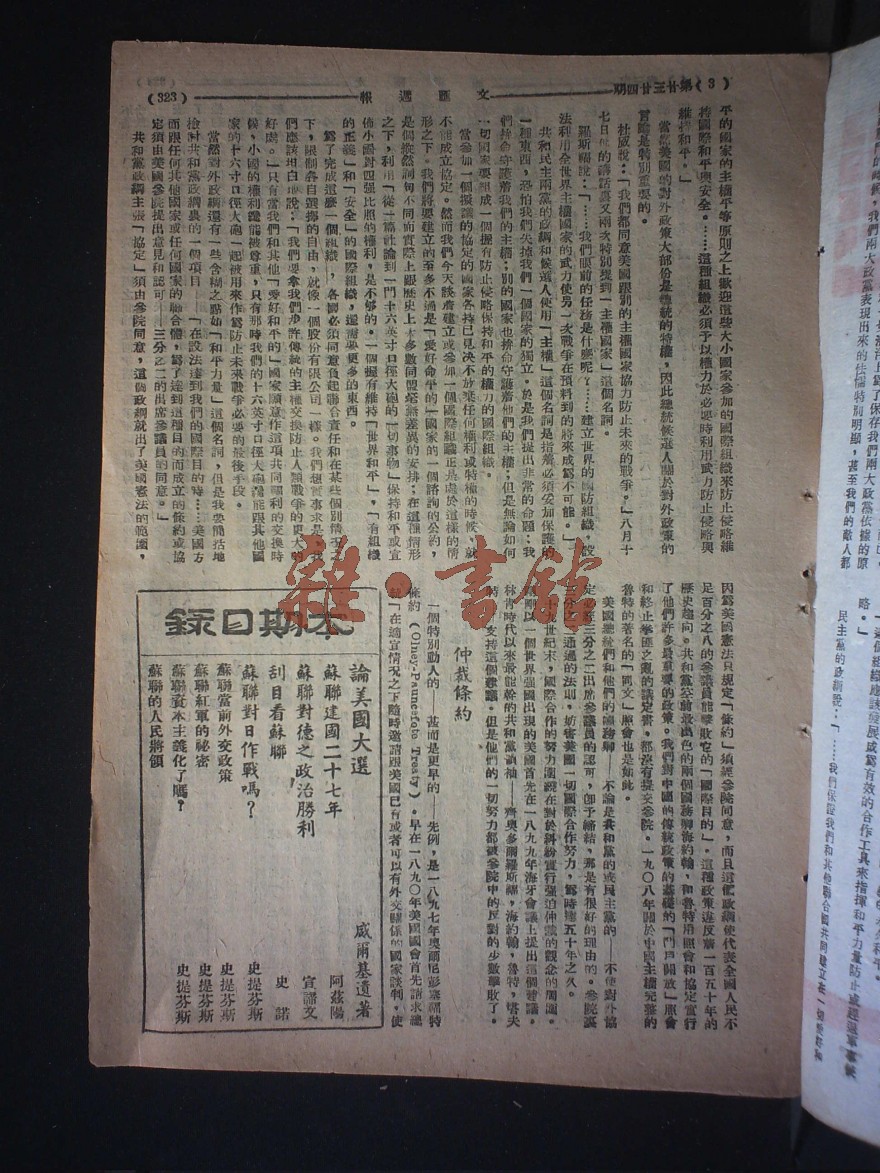 (3)期四廿三廿第
文匯週報
(323)
平的國家的主權平等原則之上歡迎這些大小國家參加的國際組織來防止侵略維
持國際和平與安全。……這種組織必須予以權力於必要時利用武力防止侵略與
維持和平。」
當然美國的對外政策大部份是總統的特權,因此總統候選人關於對外政策的
言論是特別重要的。
杜威說:「我們都同意美國跟別的主權國家協力防止未來的戰爭。」八月十
七日他的講話裏又兩次特別提到「主權國家」這個名詞。
羅斯福說:「……我們眼前的任務是什麼呢?……建立世界的國防組織,設
法利用全世界主權國家的武力使另一次戰爭在預料到的將來成為不可能。」
共和民主兩黨的政綱和候選人使用「主權」這個名詞是指着必須妥加保護的
一種東西,恐怕我們失掉我們「一個國家的獨立。於是我們提出非常的命題:我
們拚命守護着我們的主權;別的國家也拚命守護着他們的主權;但是無論如何
一切國家要組成一個握有防止侵略保持和平的權力的國際組織。
當參加一個擬議的協定的國家各持己見決不放棄任何權利或特權的時候,就
不能成立協定。然而我們今天談着建立或參加一個國際組織正是處於這樣的情
形之下。我們將要建立的至多不過是「愛好和平的」國家的一個諮詢的公約,
是個縱然詞句不同而實際上跟歷史上大多數同盟毫無差異的安排;在這種情形
之下,利用「從一篇社論到一門十六英寸口徑大砲的一切事物」保持和平或宣
佈小國對四强比照的權利,是不够的。一個握有維持「世界和平」,「有組織
的正義」和「安全」的國際組織,還需要更多的東西。
為了完成這麼一個組織——各國必須同意負起聯合責任和在某些個別情形之
下,限制各自選擇的自由,就像一個股份有限公司一樣。我們想實事求是,我
們應該坦白地說:「我們要拿我們少許傳統的主權交換防止人類戰爭的更大的
好處。」只有當我們和其他「愛好和平的」國家願意作這項共同權利的交換時
候,小國的權利纔能被尊重,只有那時我們的十六英寸口徑大砲纔能跟其他國
家的十六寸口徑大砲一起被用來作為防止未來戰爭必要的最後手段。
當然對外政綱還有一些含糊之點如「和平力量」這個名詞,但是我要簡括地
檢討共和黨政綱裏的一個項目——「在設法達到我們的國際目的時……美國方
面跟任何其他國家或任何國家的聯合體,為了達到這種目的而成立的條約或協
定須由美國參院提出意見和認可——三分之二的出席參議員的同意。」
共和黨政綱主張「協定」須由參院同意,這個政綱就出了美國憲法的範圍,
因為美國憲法只規定「條約」須經參院同意,而且這個政綱使代表全國人民不
足百分之八的參議員能擊敗它的「國際目的」。這種政策違反着一百五十年的
歷史趨向。共和黨空前最出色的兩個國務卿海約翰,和魯特用照會和協定實行
了他們許多最重要的政策。我們對中國的傳統政策的基礎的「門戶開放」照會
和終止拳匪之亂的議定書,都沒有提交參院。一九〇八年關於中國主權完整的
魯特的著名的「同文」照會也是如此。
美國總統們和他們的國務卿——不論是共和黨的或民主黨的——不使對外協
定受着三分之二出席參議員的認可,卽予締結,那是有很好的理由的。參院裏
三分之二通過的法則,妨害美國一切國際合作努力,為時達五十年之久。
十九世紀末,國際合作的努力圍繞在對於糾紛實行强迫仲裁的觀念的周圍。
剛剛以一個世界强國出現的美國首先在一八九九年海牙會議上提出這個響議。
林肯時代以來最能幹的共和黨領袖——齊奧多爾羅斯福,海約翰,魯特,塔夫
特——支持這個響議。但是他們的一切努力都被參院中的反對的少數擊敗了。
仲裁條約
一個特別動人的——甚而是更早的——先例,是一八九七年奧爾尼彭塞福特
條約(Olney-Pauncefoto Treaty)。早在一八九〇年美國國會首先請求總
統「在適宜情况之下隨時邀請跟美國已有或者可以有外交關係的國家談判,使
本期目錄
論美國大選 威爾基遺著
蘇聯建國二十七年 阿茲陽
蘇聯對德之政治勝利 宣諦文
刮目看蘇聯 史諾
蘇聯對日作戰嗎? 史提芬斯
蘇聯當前外交政策 史提芬斯
蘇聯紅軍的秘密 史提芬斯
蘇聯資本主義化了嗎? 史提芬斯
蘇聯的人民將領
雜·書館
略。」
民主黨的政綱說:「……我們保證我們和其他聯合國共同建立在一切愛好和